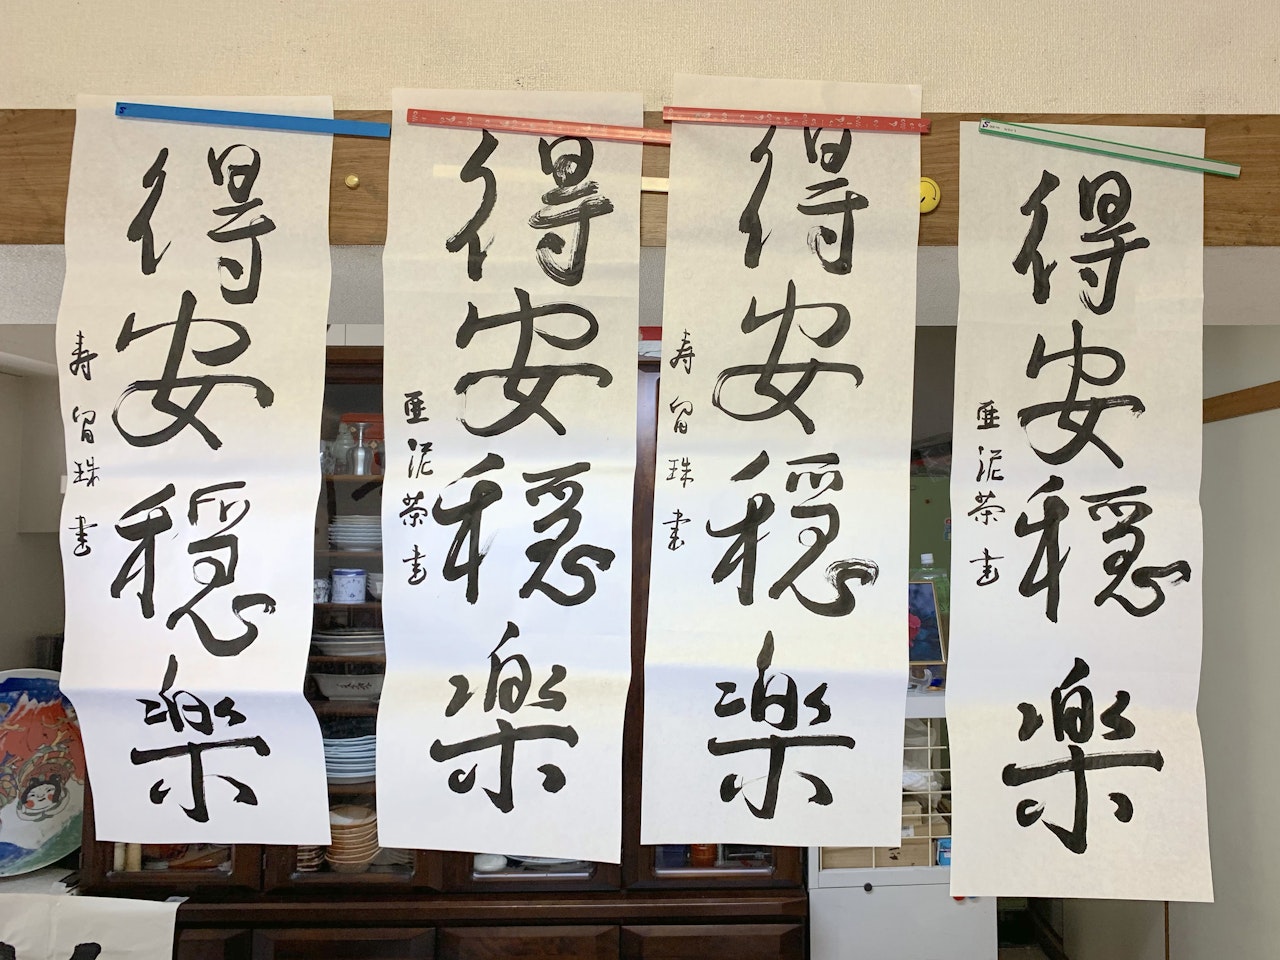 得安穏楽
寿留珠書
得安穏楽
亜泥茶書
得安穏楽
寿留珠書
得安穏楽
亜泥茶書